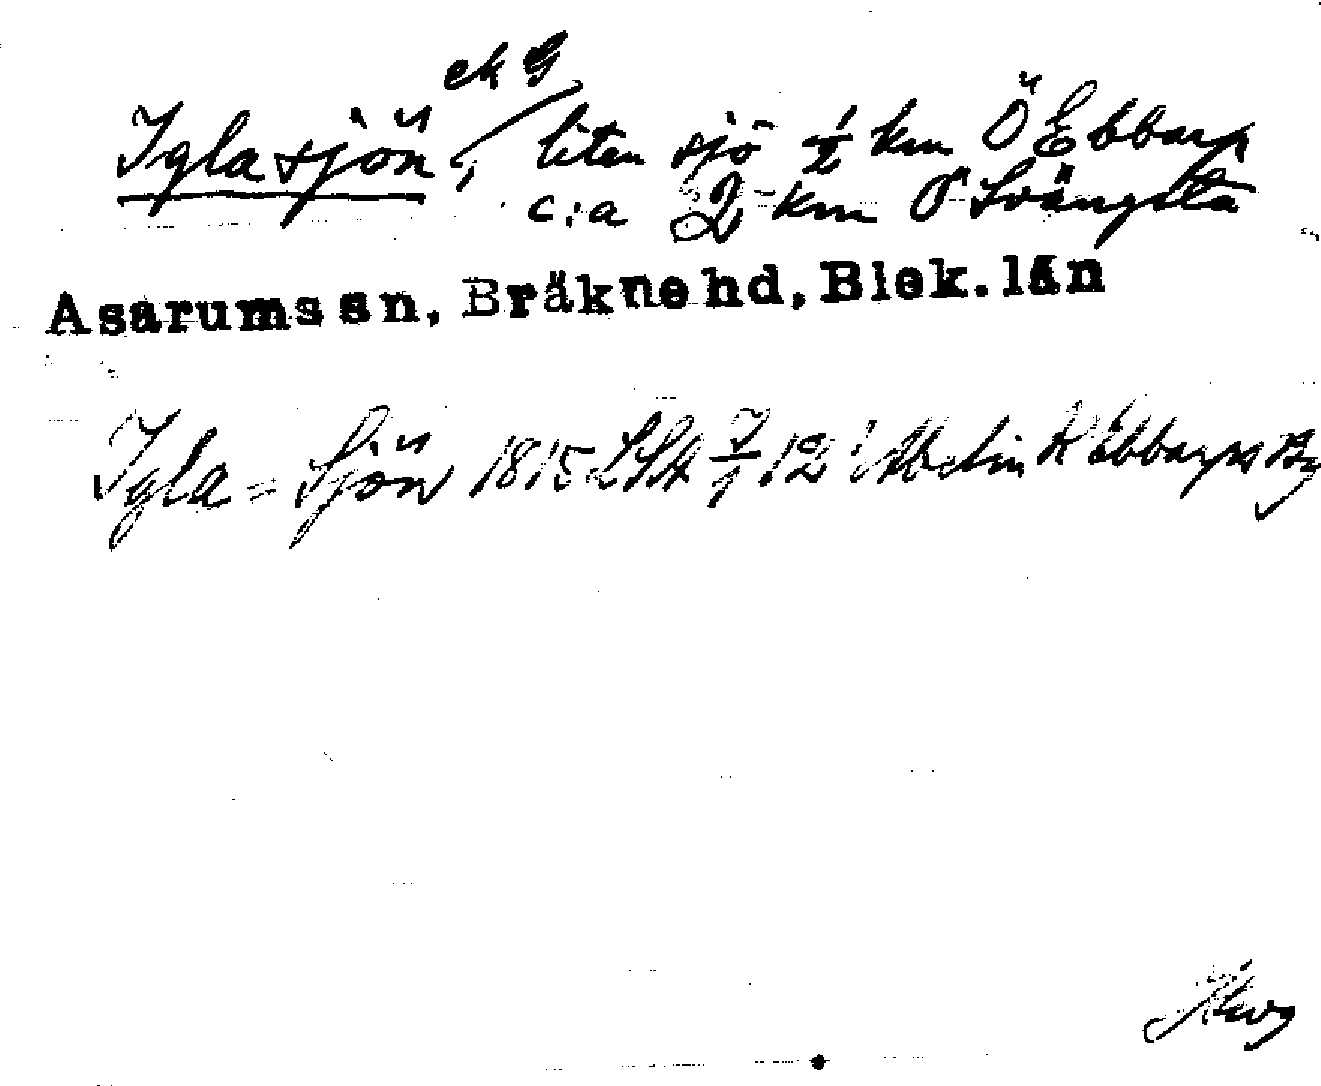 ek G
Iglasjön, liten sjö ½ km Ö Ebbarp
c:a 2 km Ö Svängsta
Asarums sn, Bräkne hd, Blek. län
Igla=Sjön 1815 LSA 7/1 12 Ebbarps By